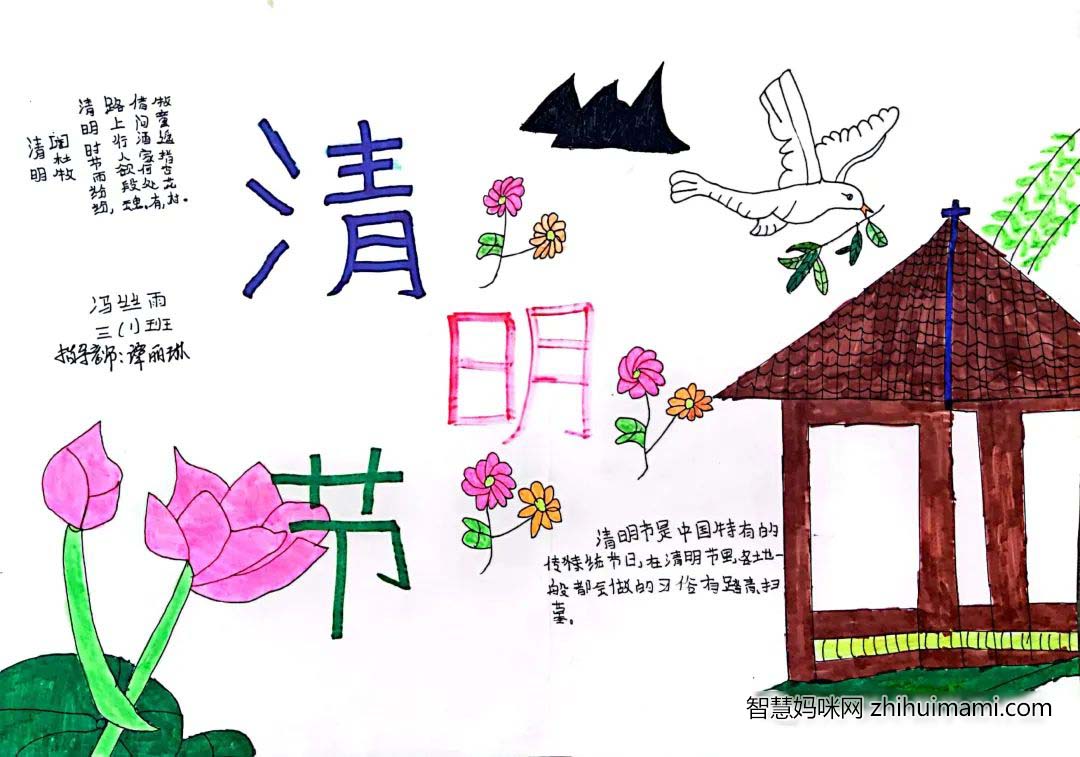 清明
杜牧
清明时节雨纷纷,
路上行人欲段魂。
借问酒家何处有,
牧童遥指杏花村。
冯丝雨
三(1)班
指导老师:谭丽琳
清
明
节
清明节是中国特有的
传统节日,在清明节里,各地一
般都会做的习俗有踏青、扫
墓。
智慧妈咪网 zhihuimami.com